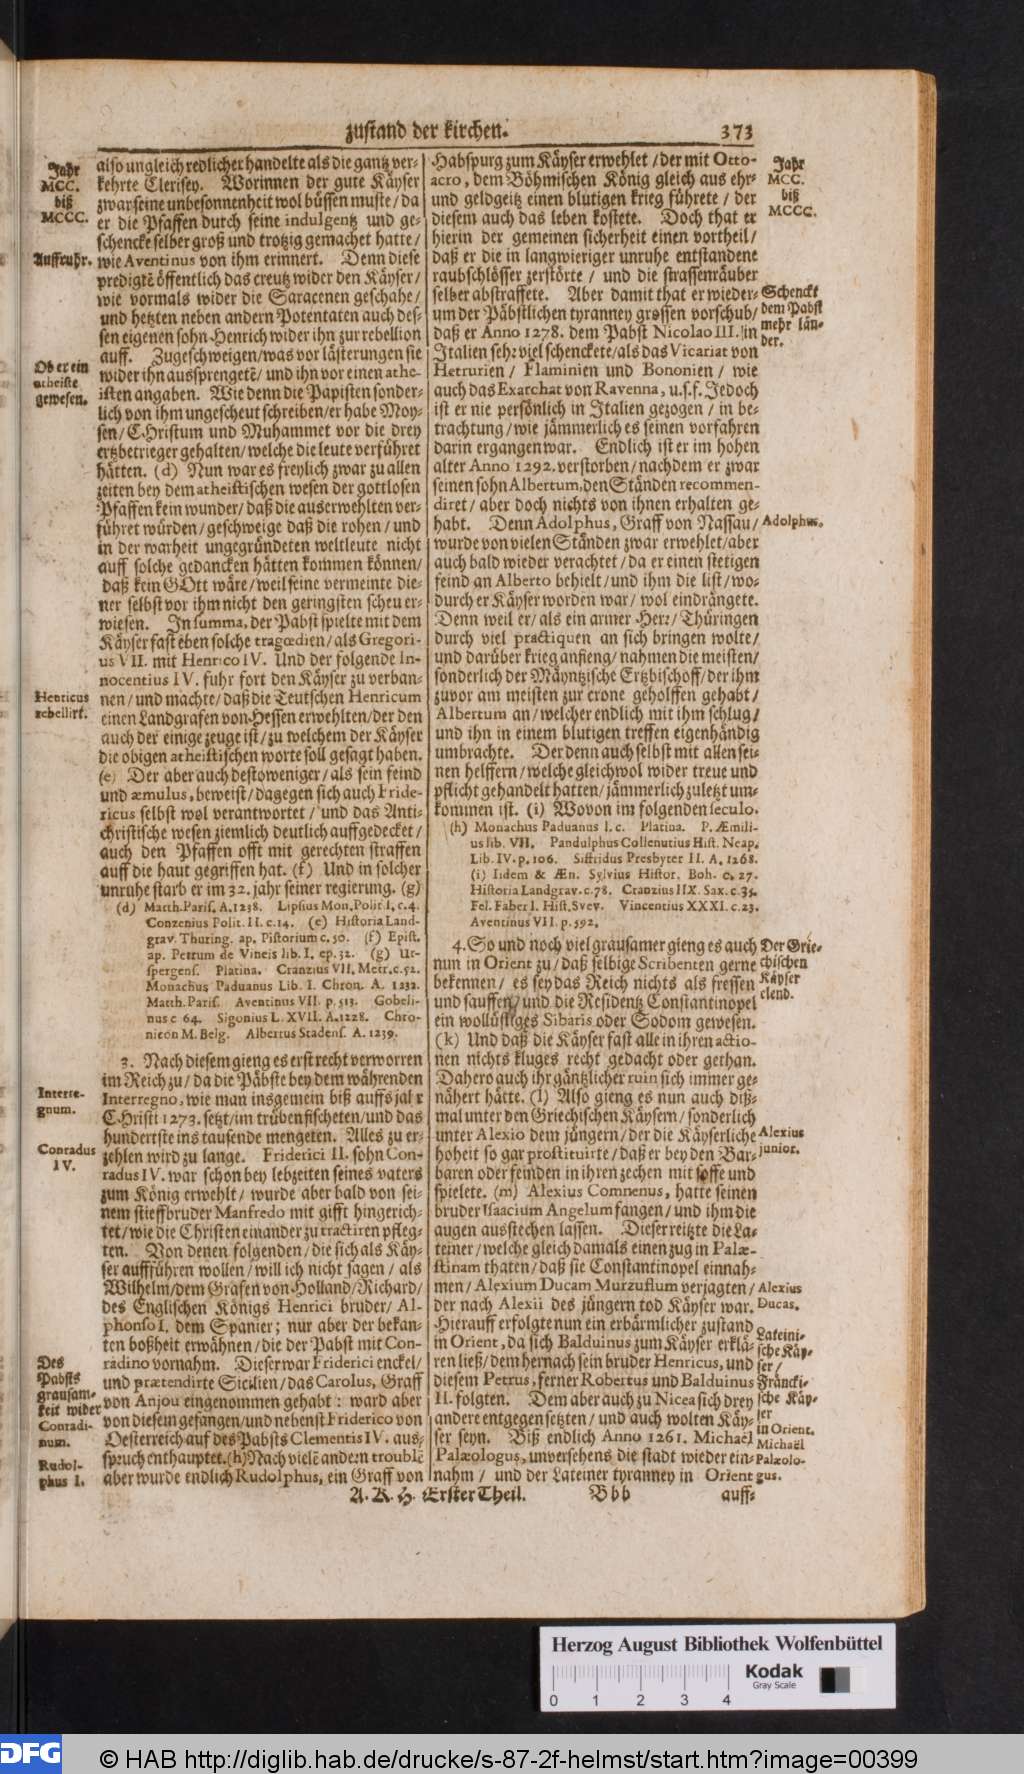 zustand der kirchen. 373
Jahr
MCC.
biß
MCCC.
Auffruhr.
Ob er ein
atheiste
gewesen.
Henricus
rebellirt.
Interre-
gnum.
Conradus
IV.
Des
Pabsts
grausam-
keit wider
Conradi-
num.
Rudol-
phus I.
also ungleich redlicher handelte als die gantz ver-
kehrte Clerisey. Worinnen der gute Käyser
zwar seine unbesonnenheit wol büssen muste / da
er die Pfaffen dutch seine indulgentz und ge-
schencke selber groß und trotzig gemachet hatte /
wie Aventinus von ihm erinnert. Denn diese
predigtē öffentlich das creutz wider den Käyser /
wie vormals wider die Saracenen geschahe /
und hetzten neben andern Potentaten auch des-
sen eigenen sohn Henrich wider ihn zur rebellion
auff. Zugeschweigen / was vor lästerungen sie
wider ihn aussprengetē / und ihn vor einen athe-
isten angaben. Wie denn die Papisten sonder-
lich von ihm ungescheut schreiben / er habe Moy-
sen / CHristum und Muhammet vor die drey
ertzbetrieger gehalten / welche die leute verführet
hätten. (d) Nun war es freylich zwar zu allen
zeiten bey dem atheistischen wesen der gottlosen
Pfaffen kein wunder / daß die auserwehlten ver-
führet würden / geschweige daß die rohen / und
in der warheit ungegründeten weltleute nicht
auff solche gedancken hätten kommen können /
daß kein GOtt wäre / weil seine vermeinte die-
ner selbst vor ihm nicht den geringsten scheu er-
wiesen. In summa, der Pabst spielte mit dem
Käyser fast eben solche tragœdien / als Gregori-
us VII. mit Henrico IV. Und der folgende In-
nocentius IV. fuhr fort den Käyser zu verban-
nen / und machte / daß die Teutschen Henricum
einen Landgrafen von Hessen erwehlten / der den
auch der einige zeuge ist / zu welchem der Käyser
die obigen atheistischen worte soll gesagt haben.
(e) Der aber auch destoweniger / als sein feind
und æmulus, beweist / dagegen sich auch Fride-
ricus selbst wol verantwortet / und das Anti-
christische wesen ziemlich deutlich auffgedecket /
auch den Pfaffen offt mit gerechten straffen
auff die haut gegriffen hat. (f) Und in solcher
unruhe starb er im 32. jahr seiner regierung. (g)
(d) Matth. Paris. A. 1238. Lipsius Mon. Polit. I. c. 4.
Conzenius Polit. II. c. 14. (e) Historia Land-
grav. Thuring. ap. Pistorium c. 50. (f) Epist.
ap. Petrum de Vineis lib. I. ep. 32. (g) Ur-
spergens. Platina. Cranzius VII. Metr. c. 52.
Monachus Paduanus Lib. I. Chron. A. 1232.
Matth. Paris. Aventinus VII. p. 513. Gobeli-
nus c 64. Sigonius L. XVII. A. 1228. Chro-
nicon M. Belg. Albertus Stadens. A. 1239.
3. Nach diesem gieng es erst recht verworren
im Reich zu / da die Päbste bey dem währenden
Interregno, wie man insgemein biß auffs jahr
CHristi 1273. setzt / im trüben fischeten / und das
hundertste ins tausende mengeten. Alles zu er-
zehlen wird zu lange. Friderici II. sohn Con-
radus IV. war schon bey lebzeiten seines vaters
zum König erwehlt / wurde aber bald von sei-
nem stieffbruder Manfredo mit gifft hingerich-
tet / wie die Christen einander zu tractiren pfleg-
ten. Von denen folgenden / die sich als Käy-
ser aufführen wollen / will ich nicht sagen / als
Wilhelm / dem Grafen von Holland / Richard /
des Englischen Königs Henrici bruder / Al-
phonso I. dem Spanier; nur aber der bekan-
ten boßheit erwähnen / die der Pabst mit Con-
radino vornahm. Dieser war Friderici enckel /
und prætendirte Sicilien / das Carolus, Graff
von Anjou eingenommen gehabt: ward aber
von diesem gefangen / und nebenst Friderico von
Oesterreich auf des Pabsts Clementis IV. aus-
spruch enthauptet. (h) Nach vielē andern troublē
aber wurde endlich Rudolphus, ein Graff von
Habspurg zum Käyser erwehlet / der mit Otto-
acro, dem Böhmischen König gleich aus ehr-
und geldgeitz einen blutigen krieg führete / der
diesem auch das leben kostete. Doch that er
hierin der gemeinen sicherheit einen vortheil /
daß er die in langwieriger unruhe entstandene
raubschlösser zerstörte / und die strassenräuber
selber abstraffete. Aber damit that er wieder-
um der Päbstlichen tyranney grossen vorschub /
daß er Anno 1278. dem Pabst Nicolao III. in
Italien sehr viel schenckete / als das Vicariat von
Hetrurien / Flaminien und Bononien / wie
auch das Exarchat von Ravenna, u. s. f. Jedoch
ist er nie persönlich in Italien gezogen / in be-
trachtung / wie jämmerlich es seinen vorfahren
darin ergangen war. Endlich ist er im hohen
alter Anno 1292. verstorben / nachdem er zwar
seinen sohn Albertum, den Ständen recommen-
diret / aber doch nichts von ihnen erhalten ge-
habt. Denn Adolphus, Graff von Nassau /
wurde von vielen Ständen zwar erwehlet / aber
auch bald wieder verachtet / da er einen stetigen
feind an Alberto behielt / und ihm die list / wo-
durch er Käyser worden war / wol eindrängete.
Denn weil er / als ein armer Herr / Thüringen
durch viel practiquen an sich bringen wolte /
und darüber krieg anfieng / nahmen die meisten /
sonderlich der Mäyntzische Ertzbischoff / der ihm
zuvor am meisten zur crone geholffen gehabt /
Albertum an / welcher endlich mit ihm schlug /
und ihn in einem blutigen treffen eigenhändig
umbrachte. Der denn auch selbst mit allen sei-
nen helffern / welche gleichwol wider treue und
pflicht gehandelt hatten / jämmerlich zuletzt um-
kommen ist. (i) Wovon im folgenden seculo.
(h) Monachus Paduanus l. c. Platina. P. Æmili-
us lib. VII. Pandulphus Collenutius Hist. Neap.
Lib. IV. p. 106. Siffridus Presbyter II. A. 1268.
(i) Iidem & Æn. Sylvius Histor. Boh. c. 27.
Historia Landgrav. c. 78. Cranzius IIX. Sax. c. 35.
Fel. Faber I. Hist. Svev. Vincentius XXXI. c. 23.
Aventinus VII. p. 592.
4. So und noch viel grausamer gieng es auch
nun in Orient zu / daß selbige Scribenten gerne
bekennen / es sey das Reich nichts als fressen
und sauffen / und die Residentz Constantinopel
ein wollüstiges Sibaris oder Sodom gewesen.
(k) Und daß die Käyser fast alle in ihren actio-
nen nichts kluges recht gedacht oder gethan.
Dahero auch ihr gäntzlicher ruin sich immer ge-
nähert hätte. (l) Also gieng es nun auch diß-
mal unter den Griechischen Käysern / sonderlich
unter Alexio dem jüngern / der die Käyserliche
hoheit so gar prostituirte / daß er bey den Bar-
baren oder feinden in ihren zechen mit soffe und
spielete. (m) Alexius Comnenus, hatte seinen
bruder Isaacium Angelum fangen / und ihm die
augen ausstechen lassen. Dieser reitzte die La-
teiner / welche gleich damals einen zug in Palæ-
stinam thaten / daß sie Constantinopel einnah-
men / Alexium Ducam Murzuflum verjagten /
der nach Alexii des jüngern tod Käyser war.
Hierauff erfolgte nun ein erbärmlicher zustand
in Orient, da sich Balduinus zum Käyser erklä-
ren ließ / dem hernach sein bruder Henricus, und
diesem Petrus, ferner Robertus und Balduinus
II. folgten. Dem aber auch zu Nicea sich drey
andere entgegen setzten / und auch wolten Käy-
ser seyn. Biß endlich Anno 1261. Michaël
Palæologus, unversehens die stadt wieder ein-
nahm / und der Lateiner tyranney in Orient
Jahr
MCC.
biß
MCCC.
Schenckt
dem Pabst
mehr län-
der.
Adolphus.
Der Grie-
chischen
Käyser
elend.
Alexius
junior.
Alexius
Ducas.
Lateini-
sche Käy-
ser /
Fräncki-
sche Käy-
ser
in Orient.
Michaël
Palæolo-
gus.
A. K. H. Erster Theil. Bbb auff-
Herzog August Bibliothek Wolfenbüttel
Kodak
Gray Scale
0 1 2 3 4
DFG © HAB http://diglib.hab.de/drucke/s-87-2f-helmst/start.htm?image=00399